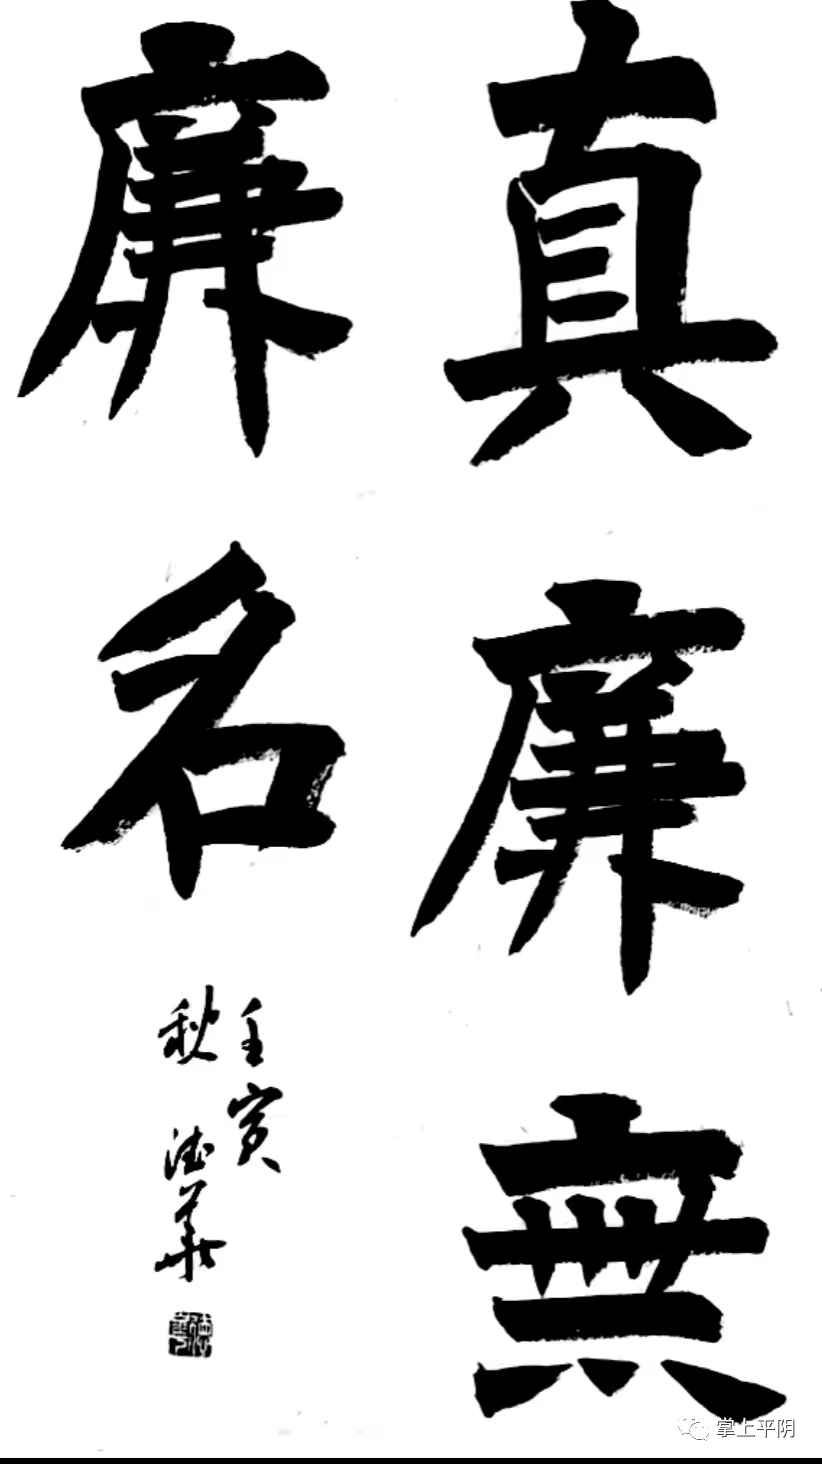 真廉無
廉名
壬寅
秋 德華
掌上平阴